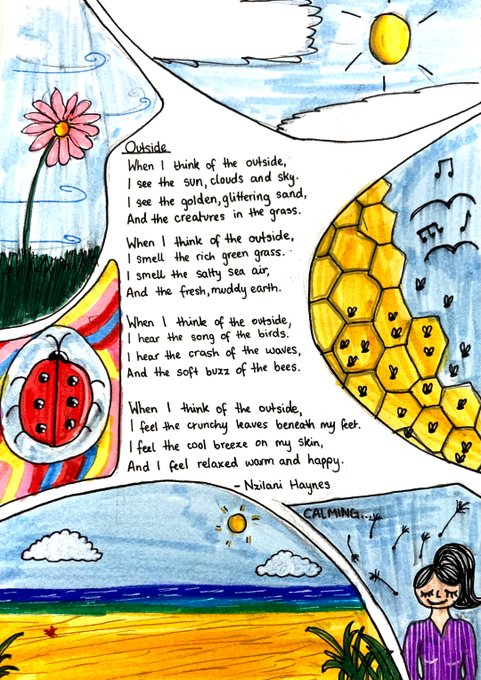 Outside
When I think of the outside,
I see the sun, clouds and sky.
I see the golden, glittering sand,
And the creatures in the grass.
When I think of the outside,
I smell the rich green grass.
I smell the salty sea air,
And the fresh, muddy earth.
When I think of the outside,
I hear the song of the birds.
I hear the crash of the waves,
And the soft buzz of the bees.
When I think of the outside,
I feel the crunchy leaves beneath my feet.
I feel the cool breeze on my skin,
And I feel relaxed warm and happy.
- Nzilani Haynes
CALMING...